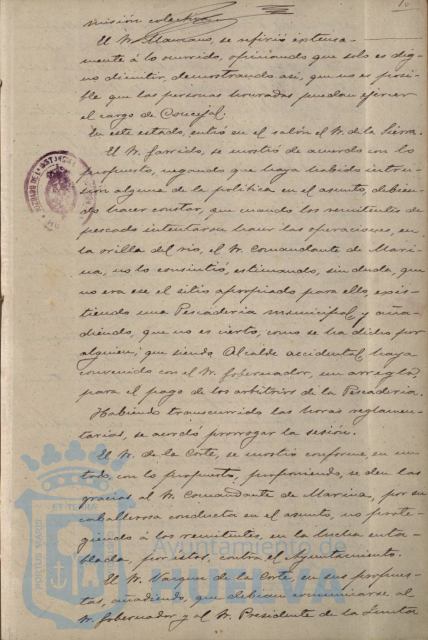 misión colectiva.
El Sr. Manzano, se refirió extensa-
mente á lo ocurrido, opinando que solo es dig-
no dimitir, demostrando así, que no es posi-
ble que las personas honradas puedan ejercer
el cargo de Concejal.
En este estado, entró en el salón el Sr. de la Sierra.
El Sr. Garrido, se mostró de acuerdo con lo
propuesto, negando que haya habido intru-
sión alguna de la política en el asunto, debien-
do hacer constar, que cuando los remitentes de
pescado intentaron hacer las operaciones, en
la orilla del rio, el Sr. Comandante de Mari-
na, no lo consintió, estimando, sin duda, que
no era ese el sitio apropiado para ello, exis-
tiendo una Pescadería municipal, y aña-
diendo, que no es cierto, como se ha dicho por
alguien, que siendo Alcalde accidental, haya
convenido con el Sr. Gobernador, un arreglo,
para el pago de los arbitrios de la Pescadería.
Habiendo transcurrido las horas reglamen-
tarias, se acordó prorrogar la sesión.
El Sr. de la Corte, se mostró conforme, en un
todo, con lo propuesto, proponiendo, se den las
gracias al Sr. Comandante de Marina, por su
caballerosa conducta en el asunto, no prote-
giendo á los remitentes, en la lucha enta-
blada por estos, contra el Ayuntamiento.
El Sr. Vazquez de la Corte, en sus propues-
tas, añadiendo, que debian comunicarse al
Sr. Gobernador y al Sr. Presidente de la Junta
PORTUS MARIS
ET TERRÆ
Ayuntamiento de
HUELVA